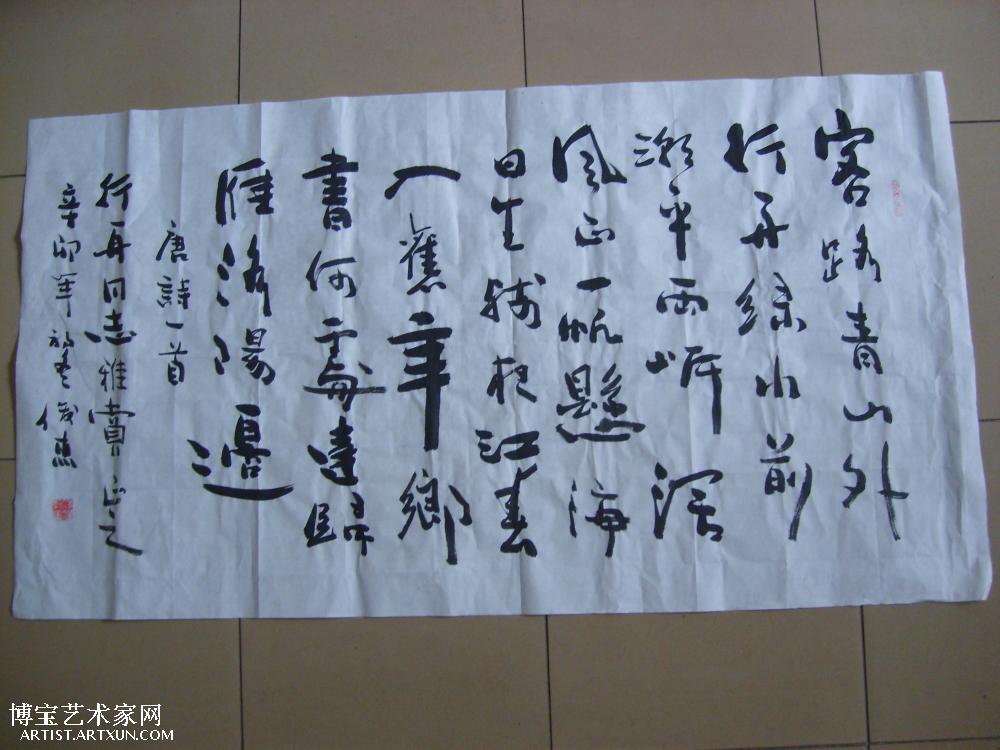 客路青山外
行舟綠水前
潮平兩岸闊
風正一帆懸海
日生殘夜江春
入舊年鄉
書何處達歸
雁洛陽邊
唐詩一首
行舟同志雅賞正之
辛卯年
博宝艺术家网
ARTIST.ARTXUN.COM